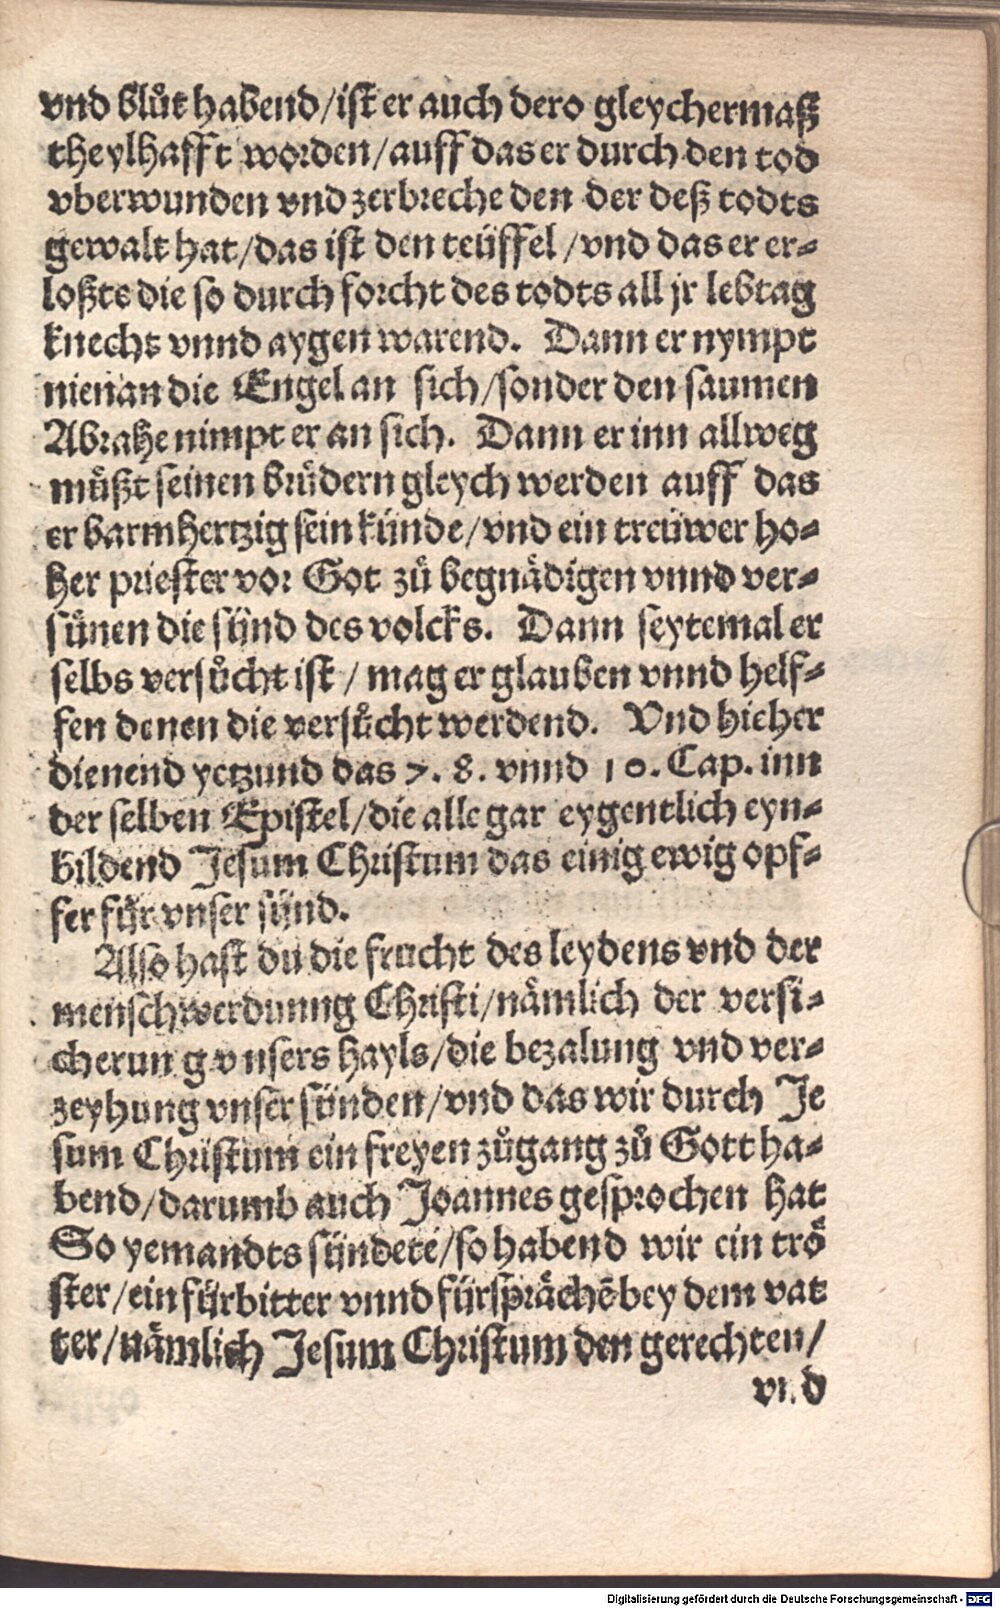 vnd blůt habend/ist er auch dero gleychermaß
theylhafft worden/auff das er durch den tod
vberwunden vnd zerbreche den der deß todts
gewalt hat/das ist den teüffel/vnd das er er-
loßte die so durch forcht des todts all jr lebtag
knecht vnnd aygen warend. Dann er nympt
nienan die Engel an sich/sonder den saumen
Abrahe nimpt er an sich. Dann er inn allweg
můßt seinen brůdern gleych werden auff das
er barmhertzig sein künde/vnd ein treüwer ho-
her priester vor Got zů begnädigen vnnd ver-
sůnen die sünd des volcks. Dann seytemal er
selbs versůcht ist/mag er glauben vnnd helf-
fen denen die versůcht werdend. Vnd hieher
dienend yetzund das 7. 8. vnnd 10. Cap. inn
der selben Epistel/die alle gar eygentlich eyn-
bildend Jesum Christum das einig ewig opf-
fer für vnser sünd.
Also hast du die frucht des leydens vnd der
menschwerdunng Christi/nämlich der versi-
cherung vnsers hayls/die bezalung vnd ver-
zeyhung vnser sünden/vnd das wir durch Je
sum Christum ein freyen zůgang zů Gott ha-
bend/darumb auch Joannes gesprochen hat
So yemandts sündete/so habend wir ein trö
ster/ein fürbitter vnnd fürsprächē bey dem vat
ter/nämlich Jesum Christum den gerechten/
vnd
Digitalisierung gefördert durch die Deutsche Forschungsgemeinschaft - DFG